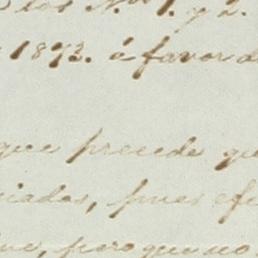 los Nos 1. y 2.
1873. á favor d
que precede qu
ciadas, pues efe
para que no